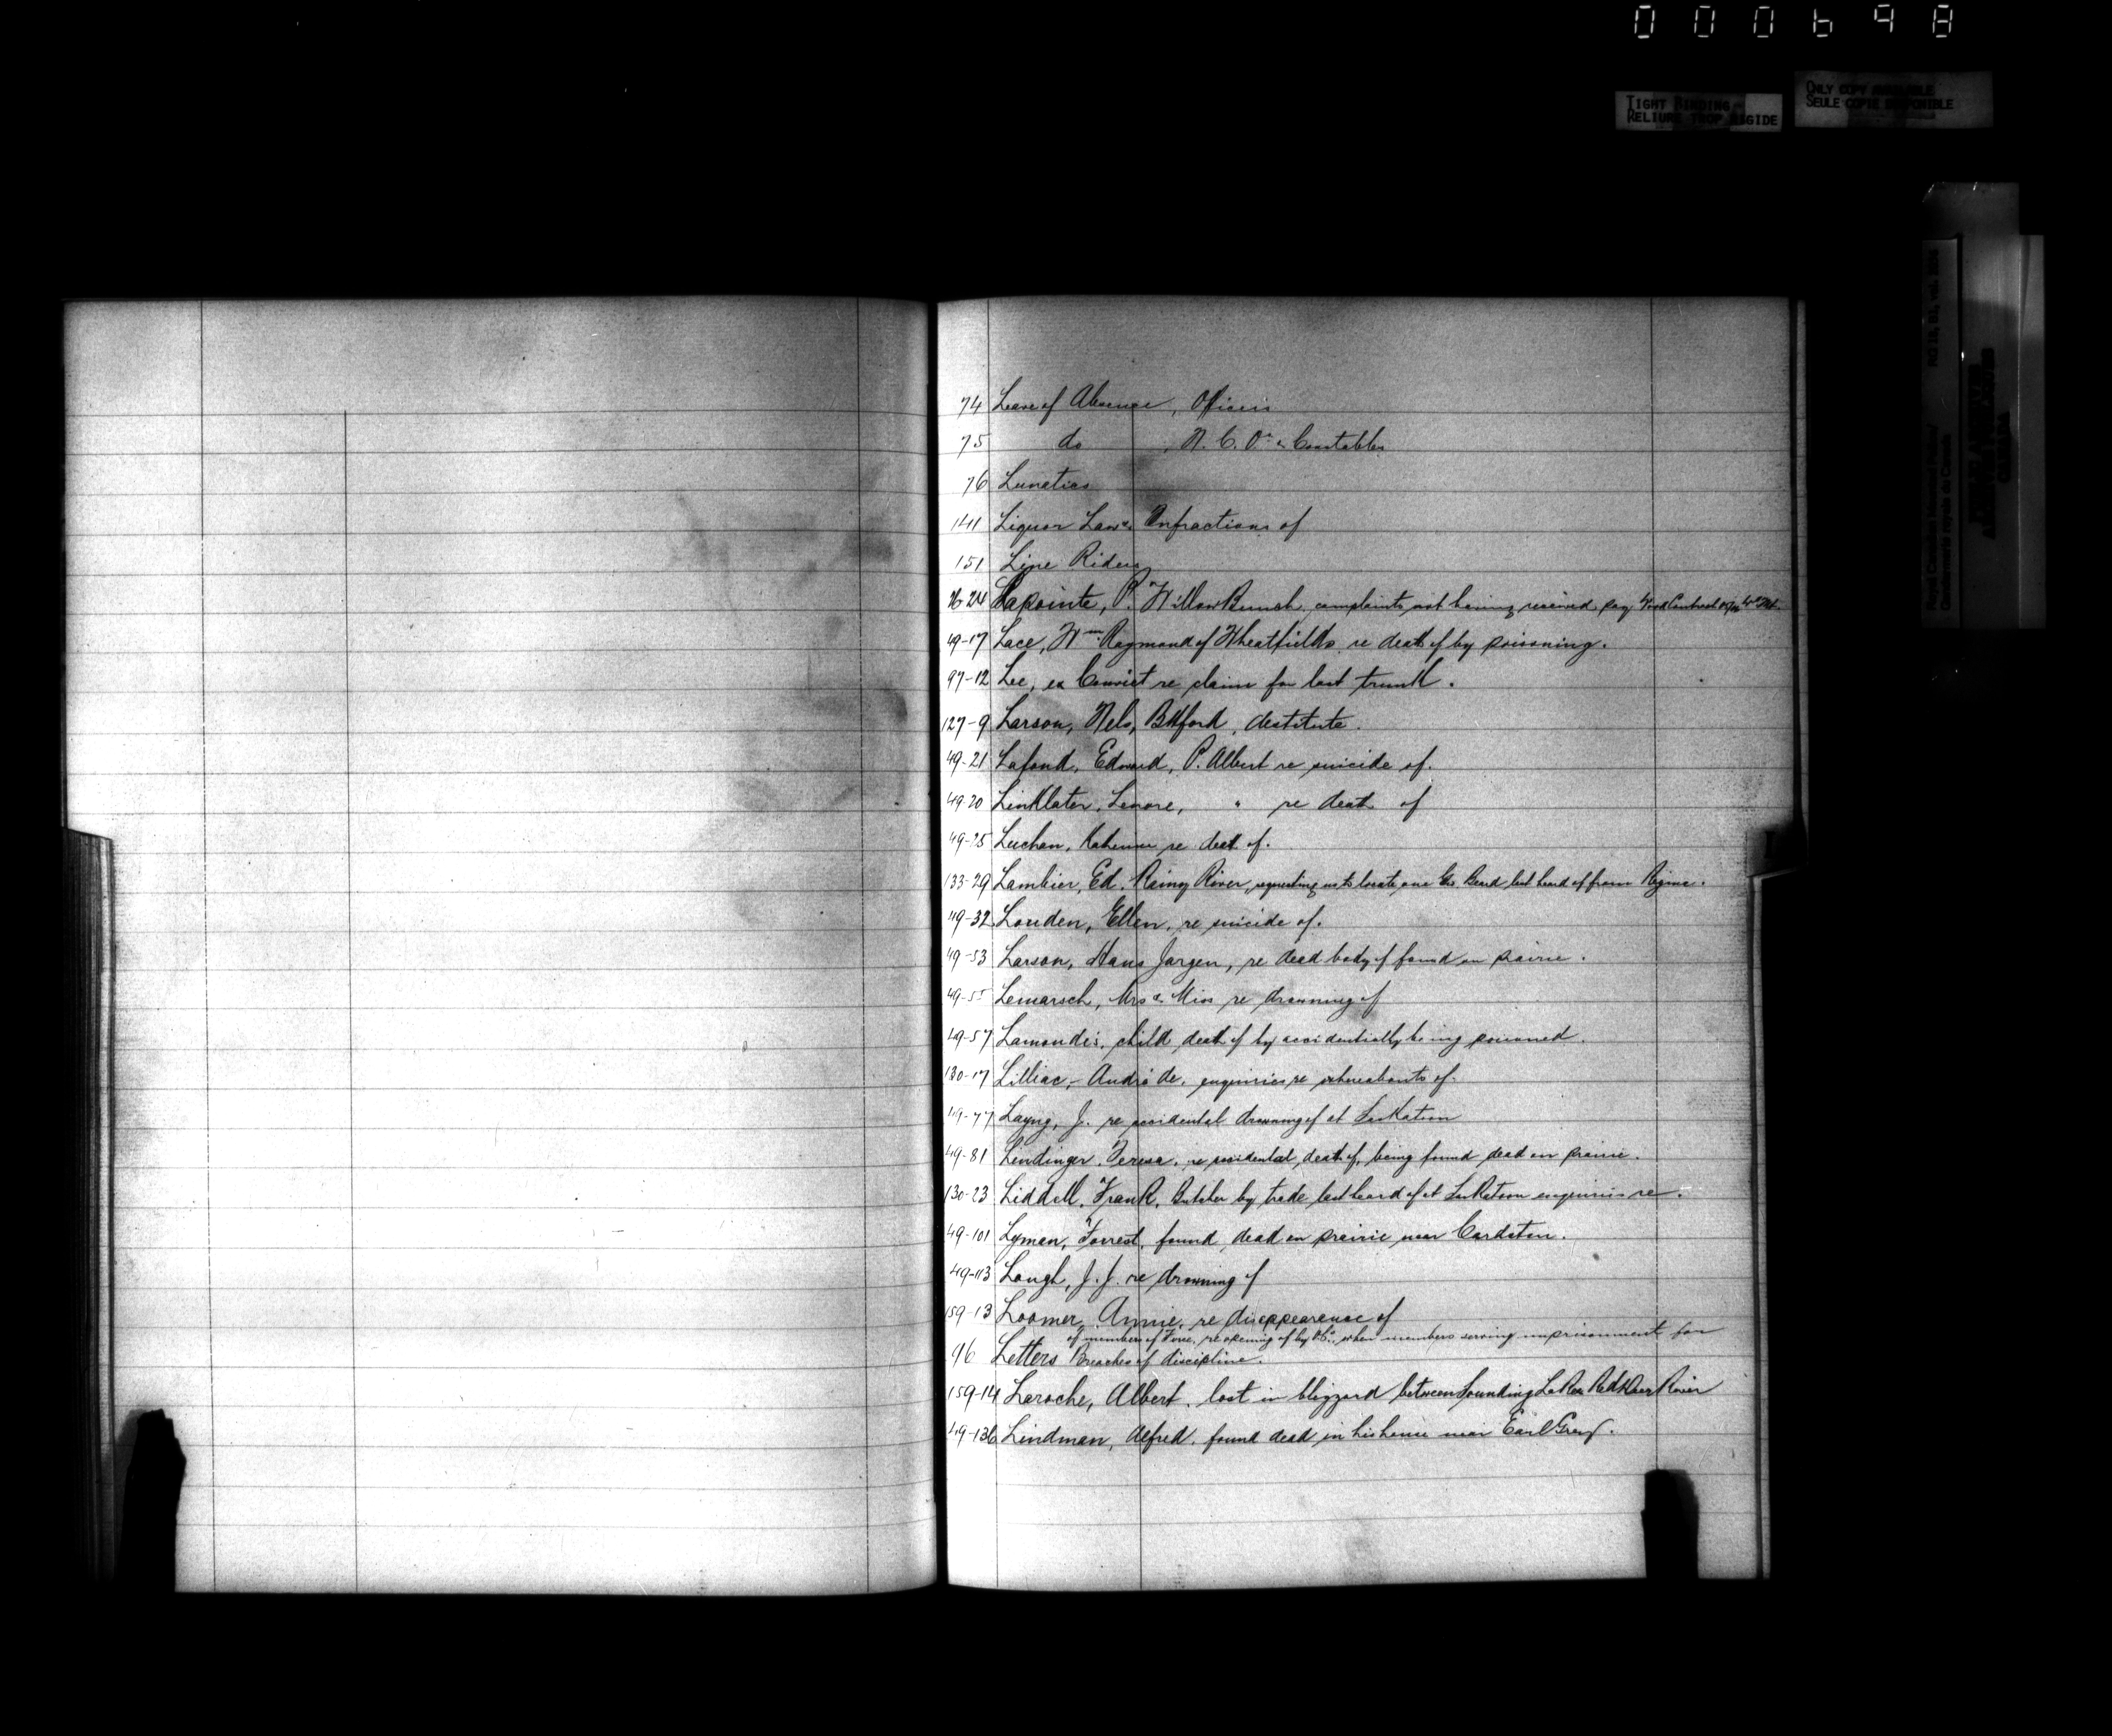 000698
TIGHT BINDING-
RELIURE TROP RIGIDE
ONLY COPY AVAILABLE
SEULE COPIE DISPONIBLE
RG 18, B1, vol.
Royal Canadian Mounted Police/
Gendarmerie royale du Canada
CANADA
74 Leave of Absence, Officers
75 do , N. C. O's & Constables
76 Lunatics
141 Liquor Laws, Infractions of
151 Line Riders
24 Lapointe, P. Willow Bunch, complaints not having received pay
49-17 Lace, Wm Raymond of Wheatfields, re death of by poisoning.
97-12 Lee, ex Convict re claim for lost trunk.
127-9 Larson, Nels, Btlford, destitute.
49-21 Lafond, Edward, P. Albert re suicide of.
49-20 Linklater, Lenore, " re death of
49-25 Luchan, re death of.
133-29 Lambier, Ed. Rainy River, requesting us to locate one Geo. Beard last heard of from Regina.
49-32 Louden, Ellen, re suicide of.
49-53 Larson, Hans Jorgen, re dead body of found on prairie.
49-55 Lemarsch, Mrs & Miss re drowning of
49-57 Lamondis, child death of by accidentially being poisoned.
130-17 Lilliac,- André de, enquiries re whereabouts of.
49-77 Layng, J. re accidental drowning of at Saskatoon
49-81 Lendinger, Teresa, re accidental death of, being found dead on prairie.
130-23 Liddell, Frank, Butcher by trade last heard of at Saskatoon enquiries re.
49-101 Lyman, Forrest, found dead on prairie near Cardston.
49-113 Lough, J. J. re drowning of
159-13 Loomer, Annie, re disappearence of
of members of Force, re opening of by O.C. when members serving imprisonment for
96 Letters Breaches of discipline.
159-14 Laroche, Albert, lost in blizzard between Sounding Lake & Red Deer River
49-136 Lindman, Alfred, found dead in his house near Earl Grey.